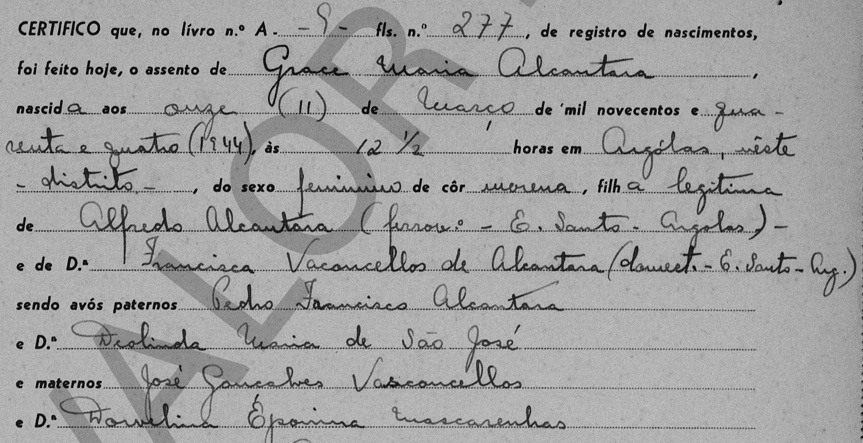 CERTIFICO que, no livro n.º A - - 9 - fls. n.º 277, de registro de nascimentos,
foi feito hoje, o assento de Grace Maria Alcantara,
nascida aos onze (11) de Março de mil novecentos e qua-
renta e quatro (1944), às 12 1/2 horas em Argólas, nêste
- distrito -, do sexo feminino de côr morena, filha legitima
de Alfredo Alcantara (ferrov.º - E. Santo - Argolas) -
e de D.ª Francisca Vaconcellos de Alcantara (domest. - E. Santo - Arg.)
sendo avós paternos Pedro Francisco Alcantara
e D.ª Deolinda Maria de São José
e maternos José Goncalves Vasconcellos
e D.ª Dorvelina Éponina Mascarenhas
VALOR